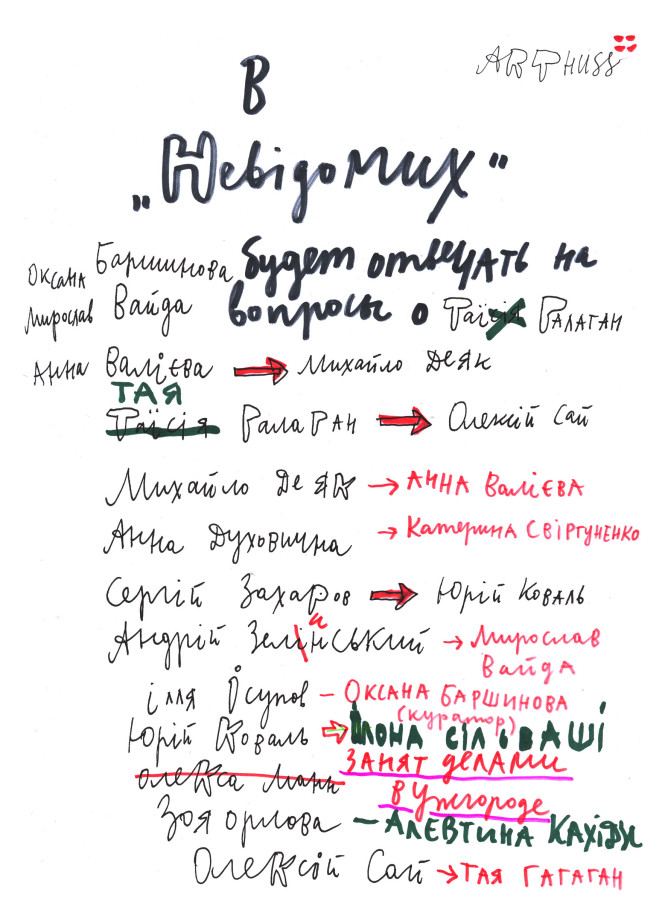 ARTHUSS
В
„Невідомих"
Оксана Баршинова будет отвечать на
Мирослав Вайда вопросы о Таїсія Галаган
Анна Валієва → Михайло Деяк
ТАЯ
Таїсія Галаган → Олексій Сай
Михайло Деяк → АННА ВАЛІЄВА
Анна Духовична → Катерина СВІРГУНЕНКО
Сергій Захаров → Юрій Коваль
и
Андрій Зелінський → Мирослав
Вайда
ілля Ісупов – ОКСАНА БАРШИНОВА
(куратор)
Юрій Коваль → ІЛОНА СІЛЬВАШІ
олекса Манн ЗАНЯТ ДЕЛАМИ
В УЖГОРОДЕ
Зоя орлова – АЛЕВТИНА КАХІДЗЕ
Олексій Сай → ТАЯ ГАГАГАН